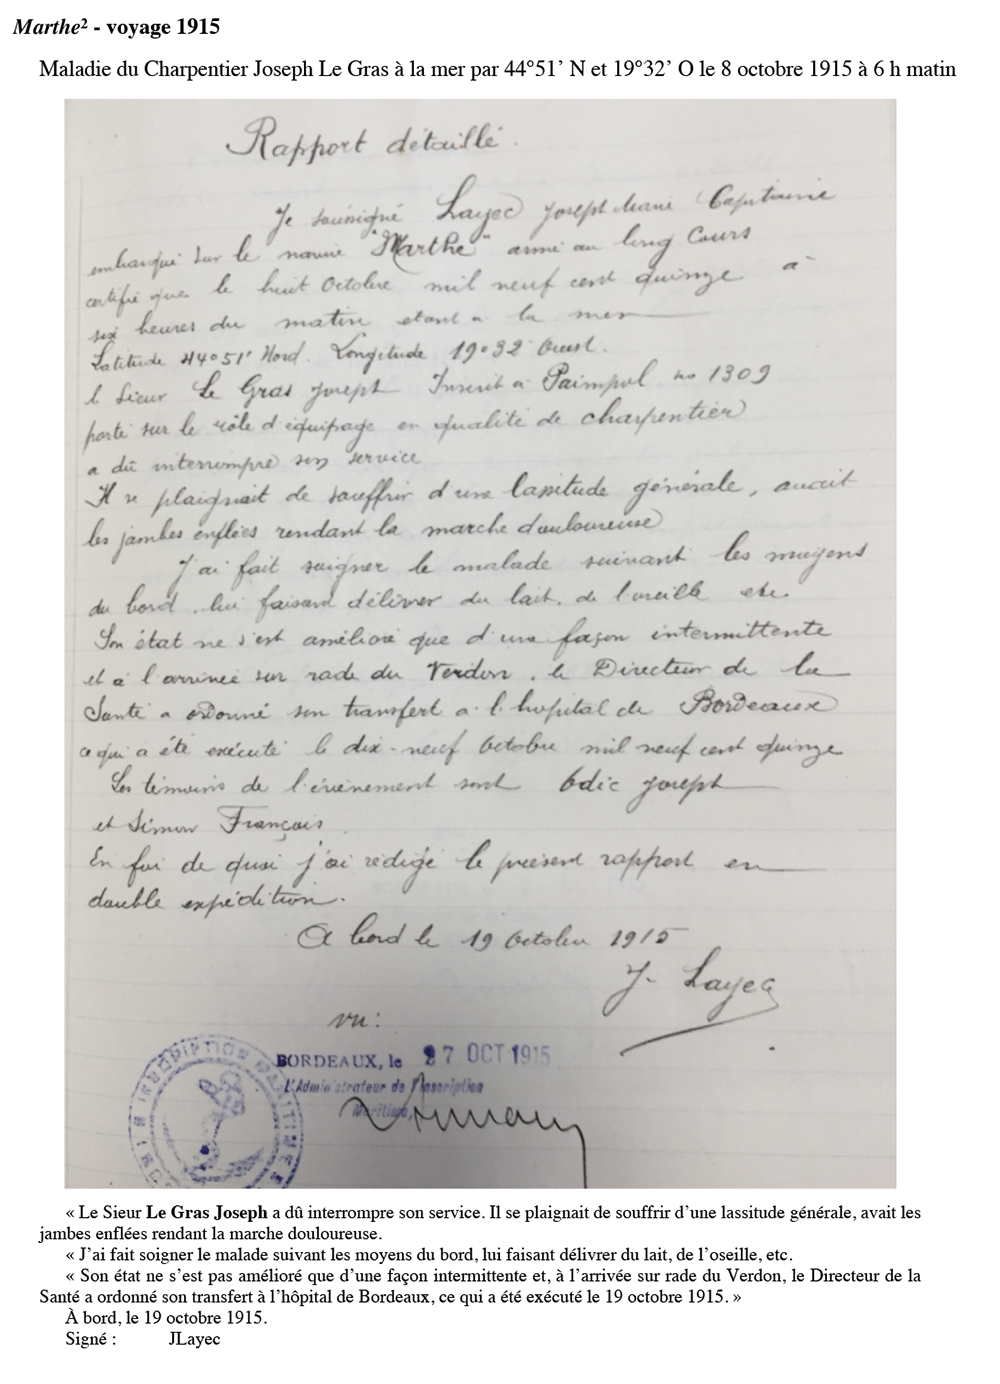 Marthe² - voyage 1915
Maladie du Charpentier Joseph Le Gras à la mer par 44°51’ N et 19°32’ O le 8 octobre 1915 à 6 h matin
Rapport détaillé.
Je soussigné Layec Joseph Marie Capitaine
embarqué sur le navire "Marthe" armé au long Cours
certifie que le huit Octobre mil neuf cent quinze à
six heures du matin étant à la mer
Latitude 44°51' Nord. Longitude 19°32' Ouest.
le Sieur Le Gras Joseph Inscrit à Paimpol no 1309
porté sur le rôle d'équipage en qualité de charpentier
a dû interrompre son service
Il se plaignait de souffrir d'une lassitude générale, avait
les jambes enflées rendant la marche douloureuse
J'ai fait soigner le malade suivant les moyens
du bord, lui faisant délivrer du lait, de l'oseille etc.
Son état ne s'est amélioré que d'une façon intermittente
et à l'arrivée sur rade du Verdon, le Directeur de la
Santé a ordonné son transfert à l'hôpital de Bordeaux
ce qui a été exécuté le dix-neuf Octobre mil neuf cent quinze
Les témoins de l'événement sont Joseph
et Simon François
En foi de quoi j'ai rédigé le présent rapport en
double expédition.
A bord le 19 Octobre 1915
J. Layec
vu:
BORDEAUX, le 27 OCT 1915
L'Administrateur de l'Inscription
Maritime,
INSCRIPTION MARITIME
« Le Sieur Le Gras Joseph a dû interrompre son service. Il se plaignait de souffrir d’une lassitude générale, avait les
jambes enflées rendant la marche douloureuse.
« J’ai fait soigner le malade suivant les moyens du bord, lui faisant délivrer du lait, de l’oseille, etc.
« Son état ne s’est pas amélioré que d’une façon intermittente et, à l’arrivée sur rade du Verdon, le Directeur de la
Santé a ordonné son transfert à l’hôpital de Bordeaux, ce qui a été exécuté le 19 octobre 1915. »
À bord, le 19 octobre 1915.
Signé : JLayec